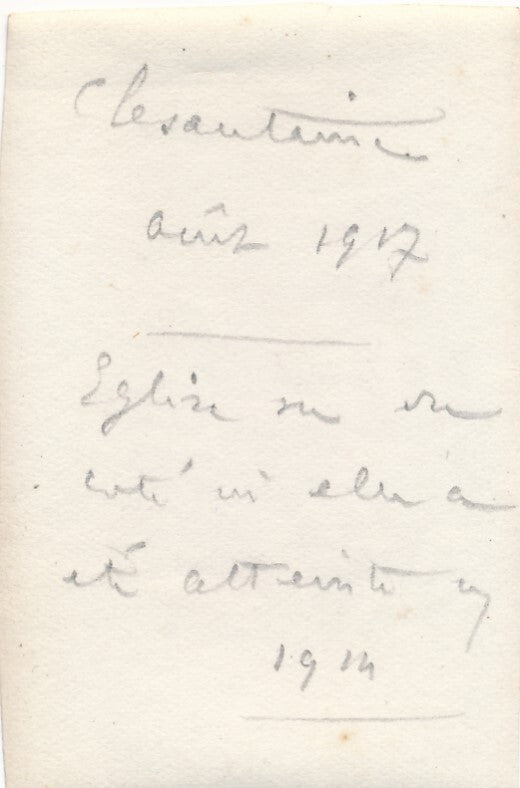 Clesantaine
août 1917
Eglise vu du
coté où elle a
été atteinte en
1914